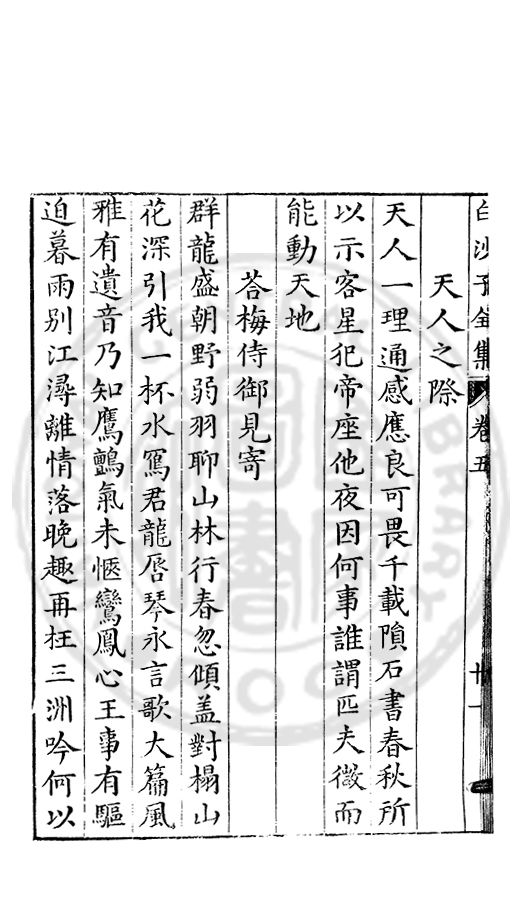 白沙子全集 卷五 廿一
天人之際
天人一理通感應良可畏千載隕石書春秋所
以示客星犯帝座他夜因何事誰謂匹夫微而
能動天地
荅梅侍御見寄
群龍盛朝野弱羽聊山林行春忽傾盖對榻山
花深引我一杯水寫君龍唇琴永言歌大篇風
雅有遺音乃知鷹鸇氣未愜鸞鳳心王事有驅
迫暮雨别江潯離情落晚趣再枉三洲吟何以